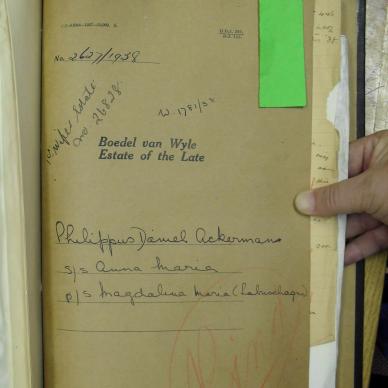 No. 2627/1938
Wife's Estate
No 26828.
W. 1781/38
Boedel van Wyle
Estate of the Late
Philippus Daniel Ackermann
s/s Anna Maria
p/s Magdalena Maria (Labuschagne)